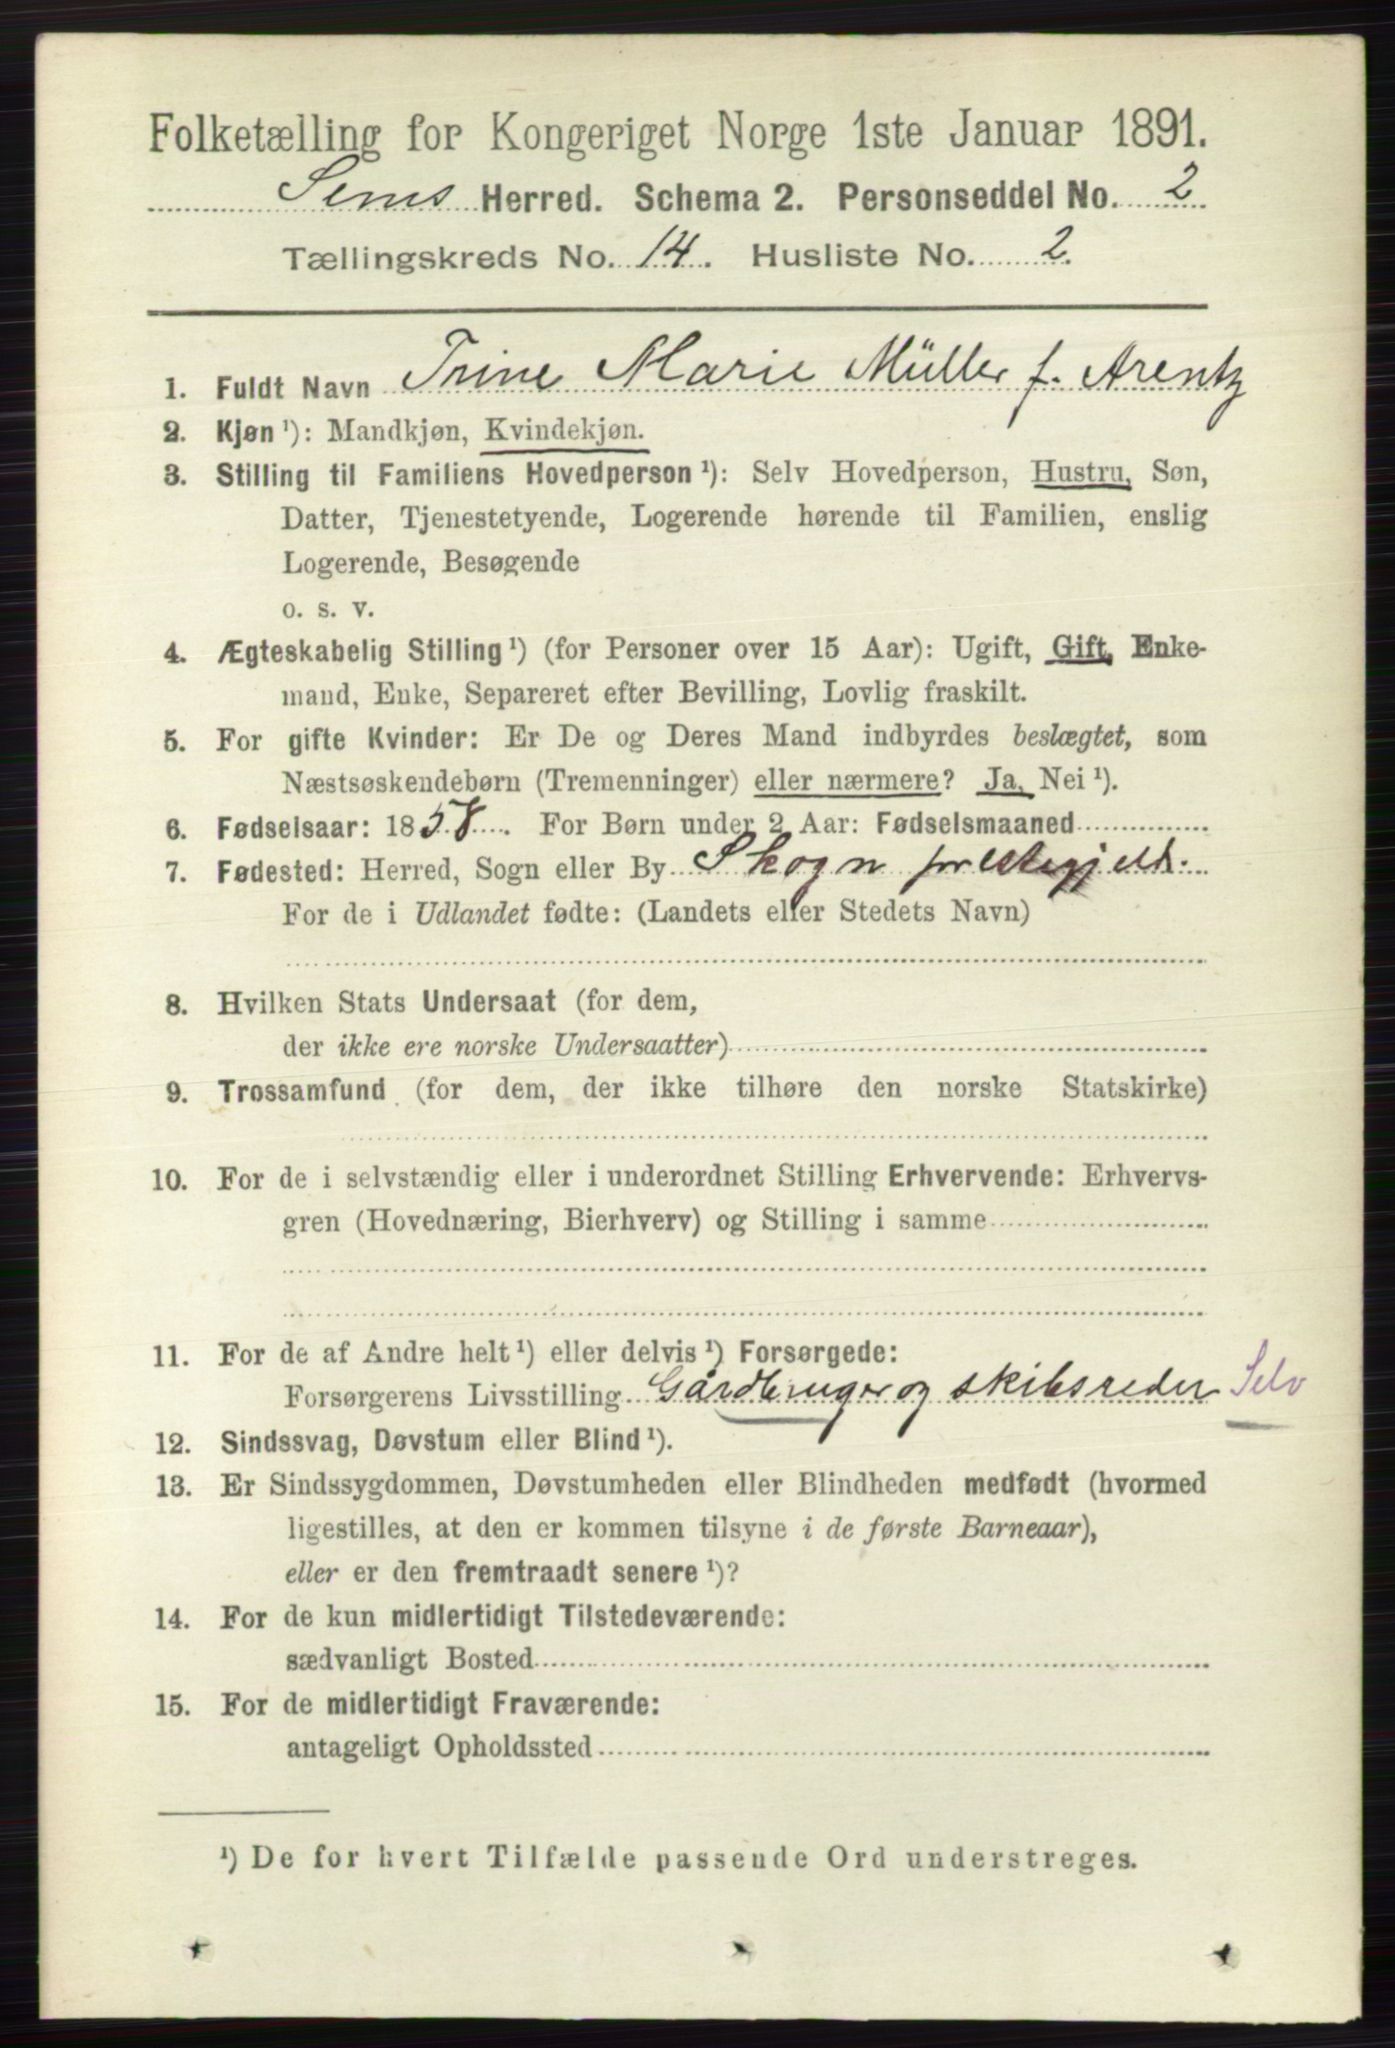 Folketælling for Kongeriget Norge 1ste Januar 1891.
Sems Herred. Schema 2. Personseddel No. 2
Tællingskreds No. 14. Husliste No. 2.
1. Fuldt Navn Trine Marie Müller f. Arentz
2. Kjøn ¹): Mandkjøn, Kvindekjøn.
3. Stilling til Familiens Hovedperson ¹): Selv Hovedperson, Hustru, Søn,
Datter, Tjenestetyende, Logerende hørende til Familien, enslig
Logerende, Besøgende
o. s. v.
4. Ægteskabelig Stilling ¹) (for Personer over 15 Aar): Ugift, Gift, Enke-
mand, Enke, Separeret efter Bevilling, Lovlig fraskilt.
5. For gifte Kvinder: Er De og Deres Mand indbyrdes beslægtet, som
Næstsøskendebørn (Tremenninger) eller nærmere? Ja, Nei ¹).
6. Fødselsaar: 1858. For Børn under 2 Aar: Fødselsmaaned
7. Fødested: Herred, Sogn eller By Skogn prestegjeld.
For de i Udlandet fødte: (Landets eller Stedets Navn)
8. Hvilken Stats Undersaat (for dem,
der ikke ere norske Undersaatter)
9. Trossamfund (for dem, der ikke tilhøre den norske Statskirke)
10. For de i selvstændig eller i underordnet Stilling Erhvervende: Erhvervs-
gren (Hovednæring, Bierhverv) og Stilling i samme
11. For de af Andre helt ¹) eller delvis ¹) Forsørgede:
Forsørgerens Livsstilling Gårdbruger og skibsreder Selv
12. Sindssvag, Døvstum eller Blind ¹).
13. Er Sindssygdommen, Døvstumheden eller Blindheden medfødt (hvormed
ligestilles, at den er kommen tilsyne i de første Barneaar),
eller er den fremtraadt senere ¹)?
14. For de kun midlertidigt Tilstedeværende:
sædvanligt Bosted
15. For de midlertidigt Fraværende:
antageligt Opholdssted
¹) De for hvert Tilfælde passende Ord understreges.